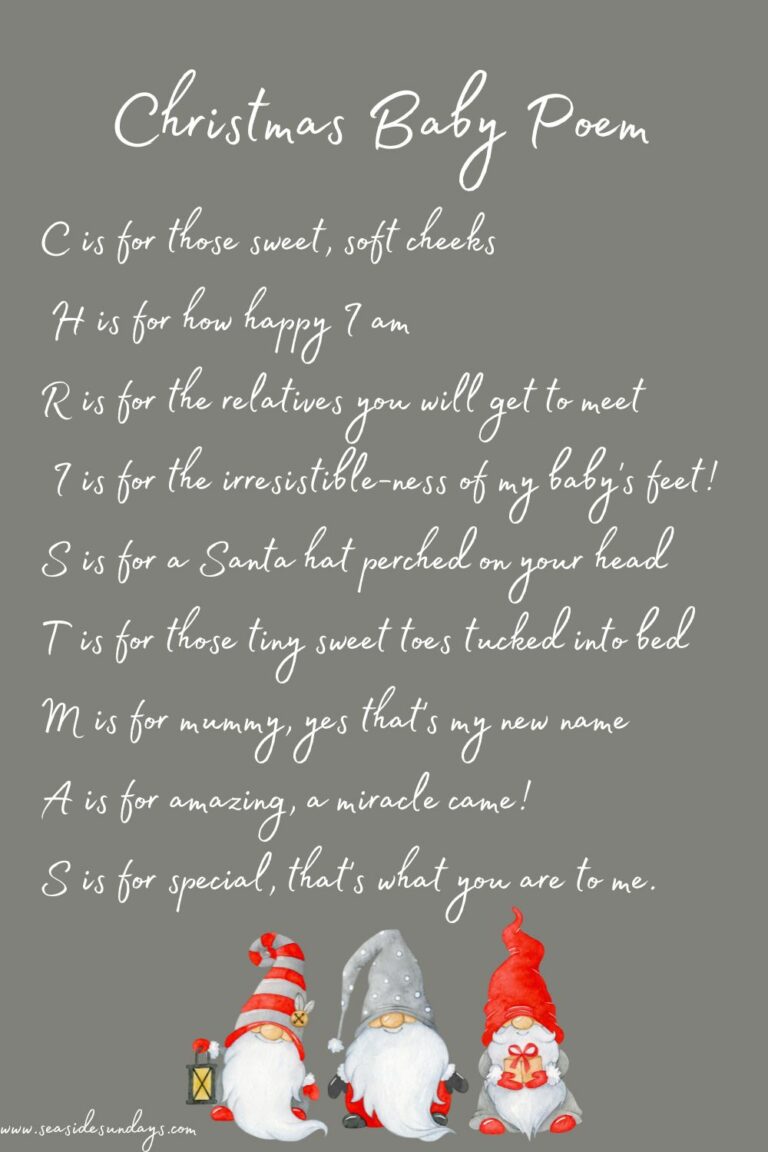 Christmas Baby Poem
C is for those sweet, soft cheeks
H is for how happy I am
R is for the relatives you will get to meet
I is for the irresistible-ness of my baby's feet!
S is for a Santa hat perched on your head
T is for those tiny sweet toes tucked into bed
M is for mummy, yes that's my new name
A is for amazing, a miracle came!
S is for special, that's what you are to me.
www.seasidesundays.com